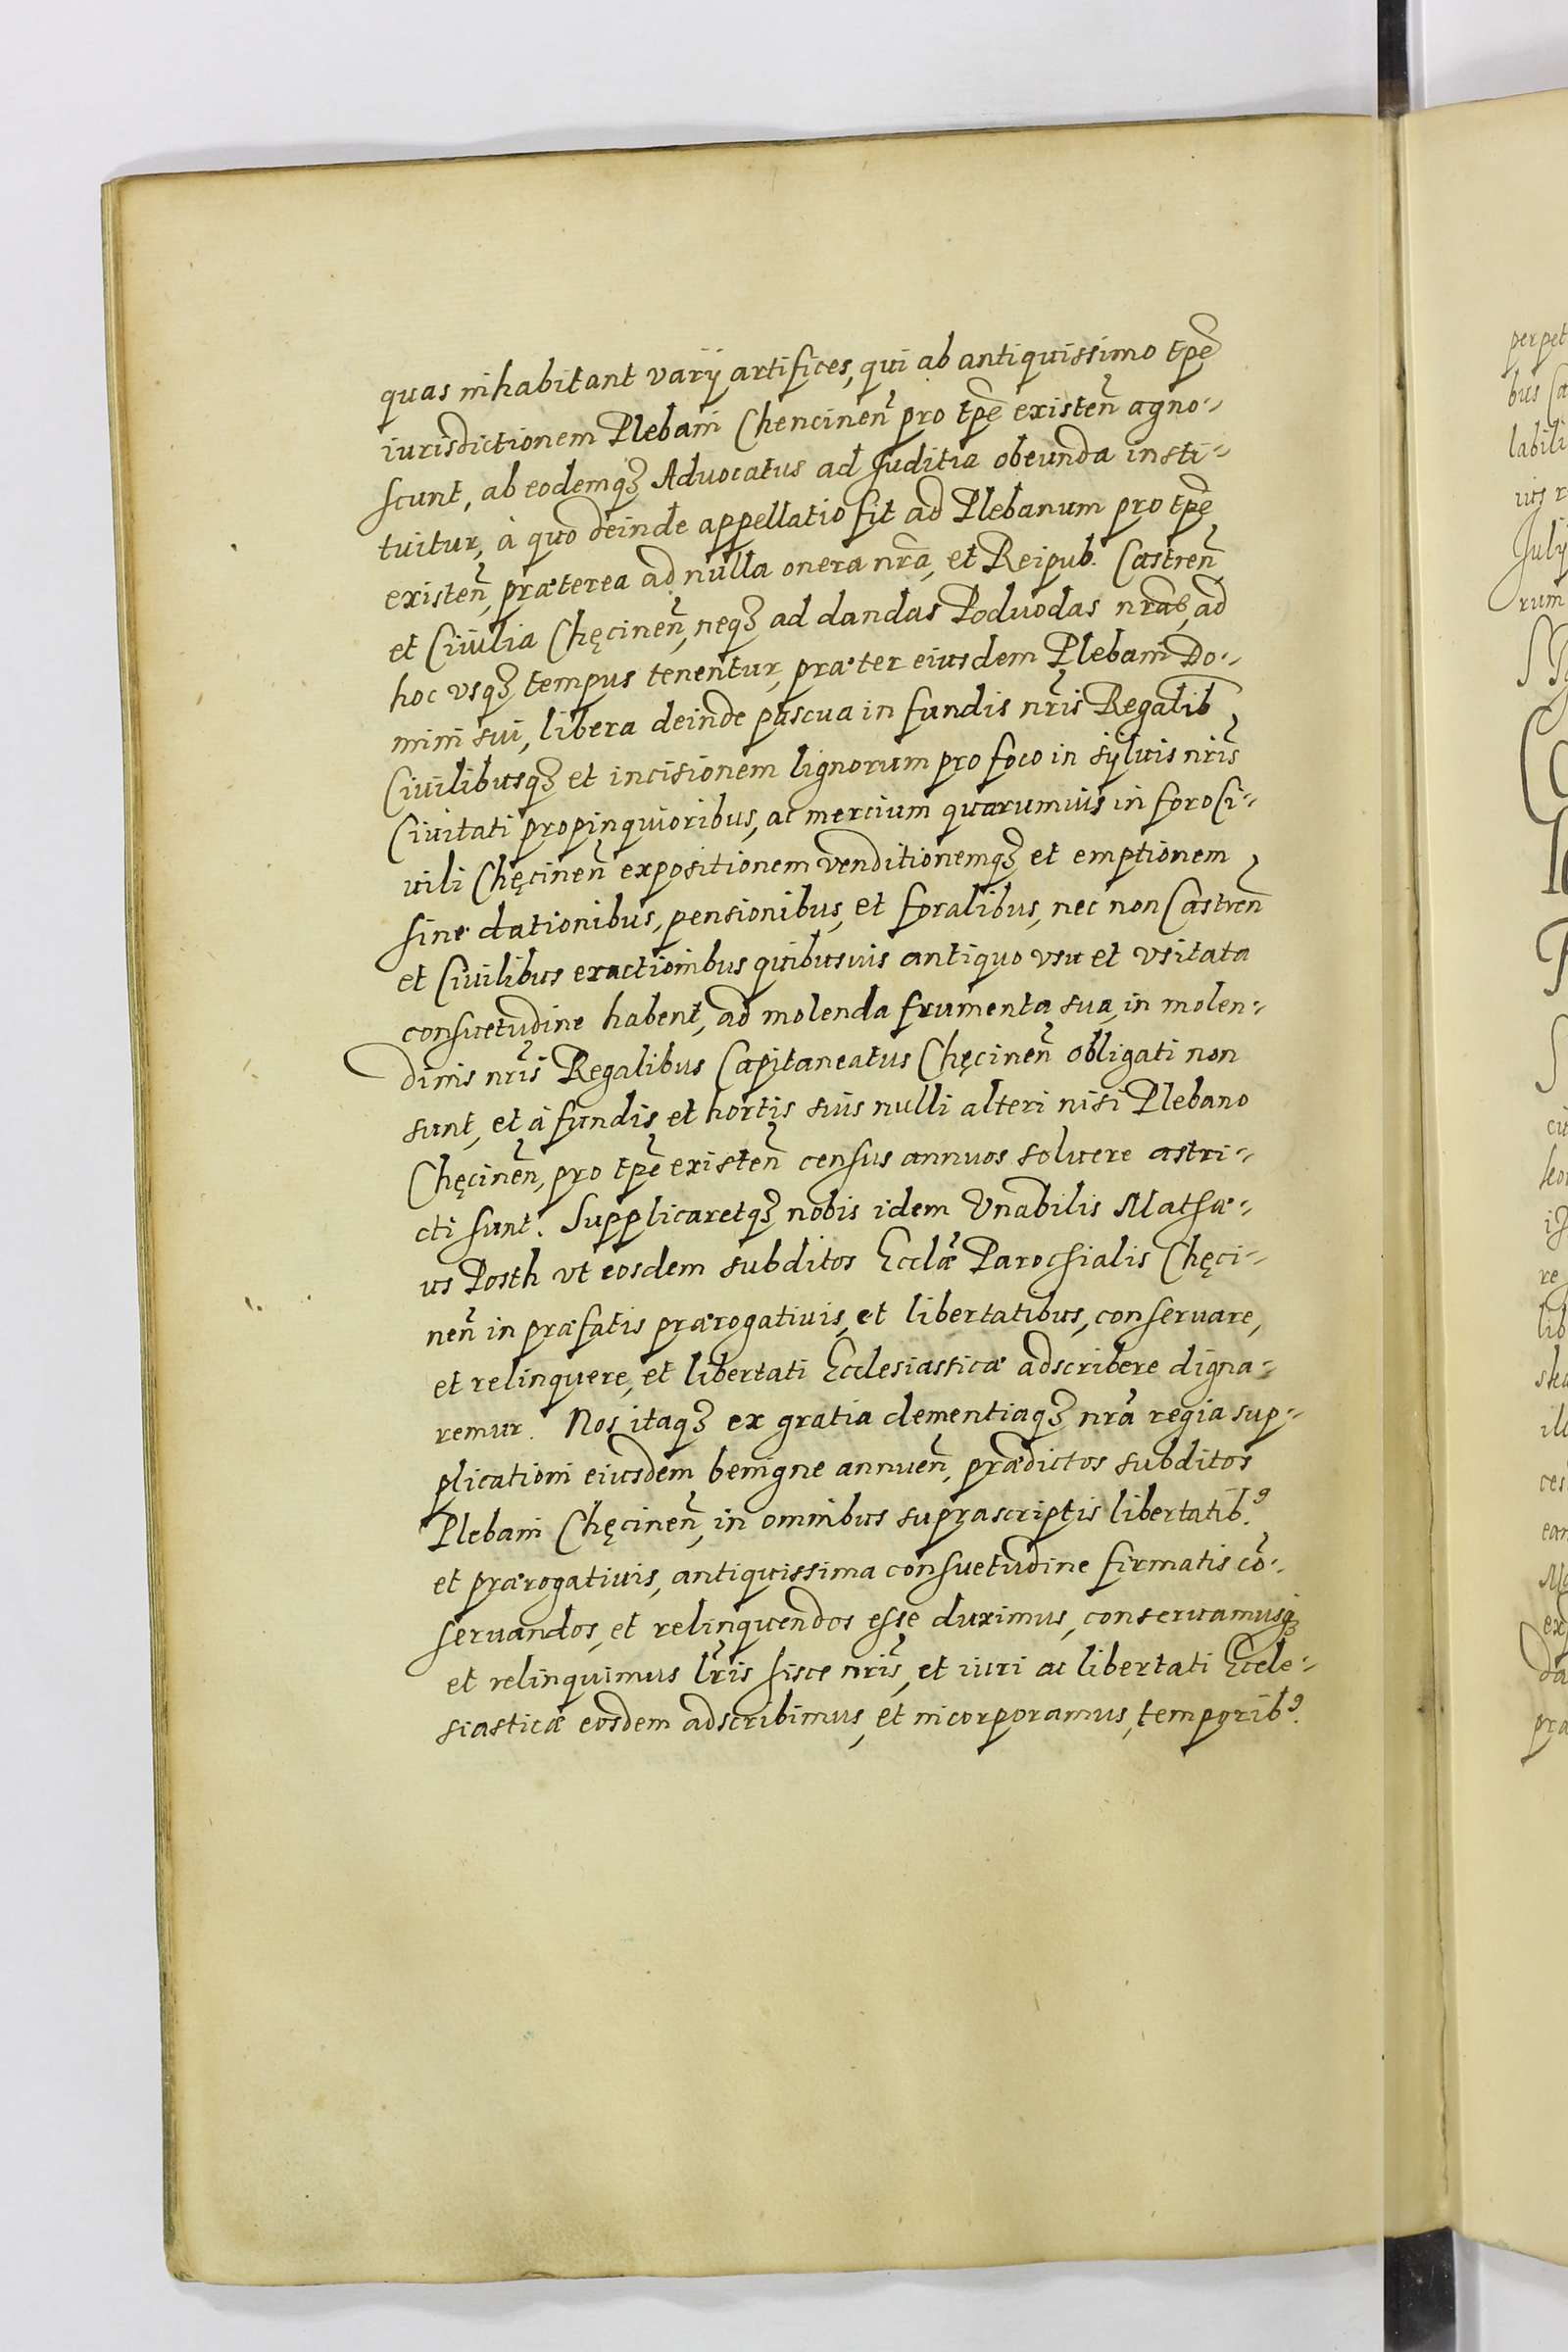 quas inhabitant varij artifices, qui ab antiquissimo tpe
iurisdictionem Plebani Chencineñ pro tpe existeñ agno-
scunt, ab eodemqȝ Advocatus ad Juditia obeunda insti-
tuitur, à quo deinde appellatio fit ad Plebanum pro tpe
existeñ, præterea ad nulla onera nra, et Reipub. Castreñ
et Ciuilia Chęcineñ, neqȝ ad dandas Poduodas nras, ad
hoc vsqȝ tempus tenentur, præter eiusdem Plebani Do-
mini sui, libera deinde pascua in fundis nris Regalib
Ciuilibusqȝ et incisionem lignorum pro foco in syluis nris
Ciuitati propinquioribus, ac mercium quarumuis in foro Ci-
uili Chęcineñ expositionem venditionemqȝ et emptionem
sine dationibus, pensionibus, et foralibus, nec non Castreñ
et Ciuilibus exactionibus quibusuis antiquo vsu et vsitata
consuetudine habent, ad molenda frumenta sua, in molen-
dinis nris Regalibus Capitaneatus Chęcineñ obligati non
sunt, et à fundis et hortis suis nulli alteri nisi Plebano
Chęcineñ, pro tpe existeñ census annuos soluere astri-
cti sunt. Supplicaretqȝ nobis idem Vnabilis Mathæ-
us Posth vt eosdem subditos Ecclæ Parochialis Chęci-
neñ in præfatis prærogatiuis, et libertatibus, conseruare,
et relinquere, et libertati Ecclesiasticæ adscribere digna-
remur. Nos itaqȝ ex gratia clementiaqȝ nra regia sup-
plicationi eiusdem benigne annueñ, prædictos subditos
Plebani Chęcineñ, in omnibus suprascriptis libertatib9.
et prærogatiuis, antiquissima consuetudine firmatis cõ-
seruandos, et relinquendos esse duximus, conseruamusqȝ
et relinquimus lris hisce nris, et iuri ac libertati Eccle-
siasticæ eosdem adscribimus, et incorporamus, temporib9.